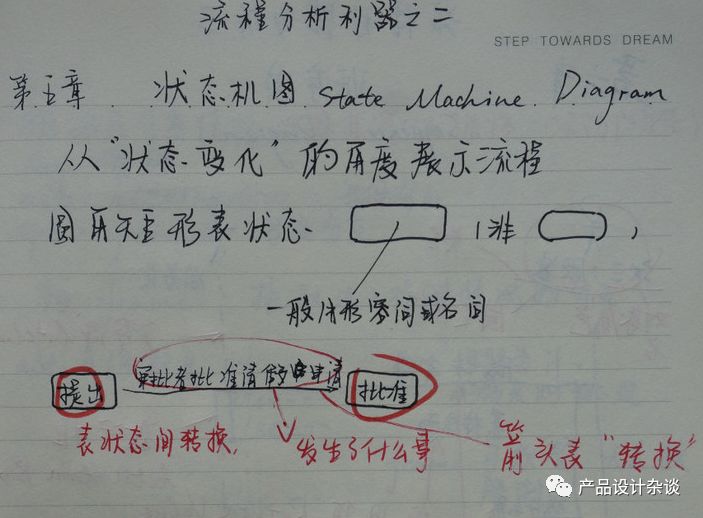 流程分析利器之二
STEP TOWARDS DREAM
第五章 状态机图 State Machine Diagram
从“状态变化”的角度展示流程
圆角矩形表状态 (非 ),
一般用形容词或名词
提出 审批者批准请假申请 批准
表状态间转换, 发生了什么事 箭头表“转换”
产品设计杂谈